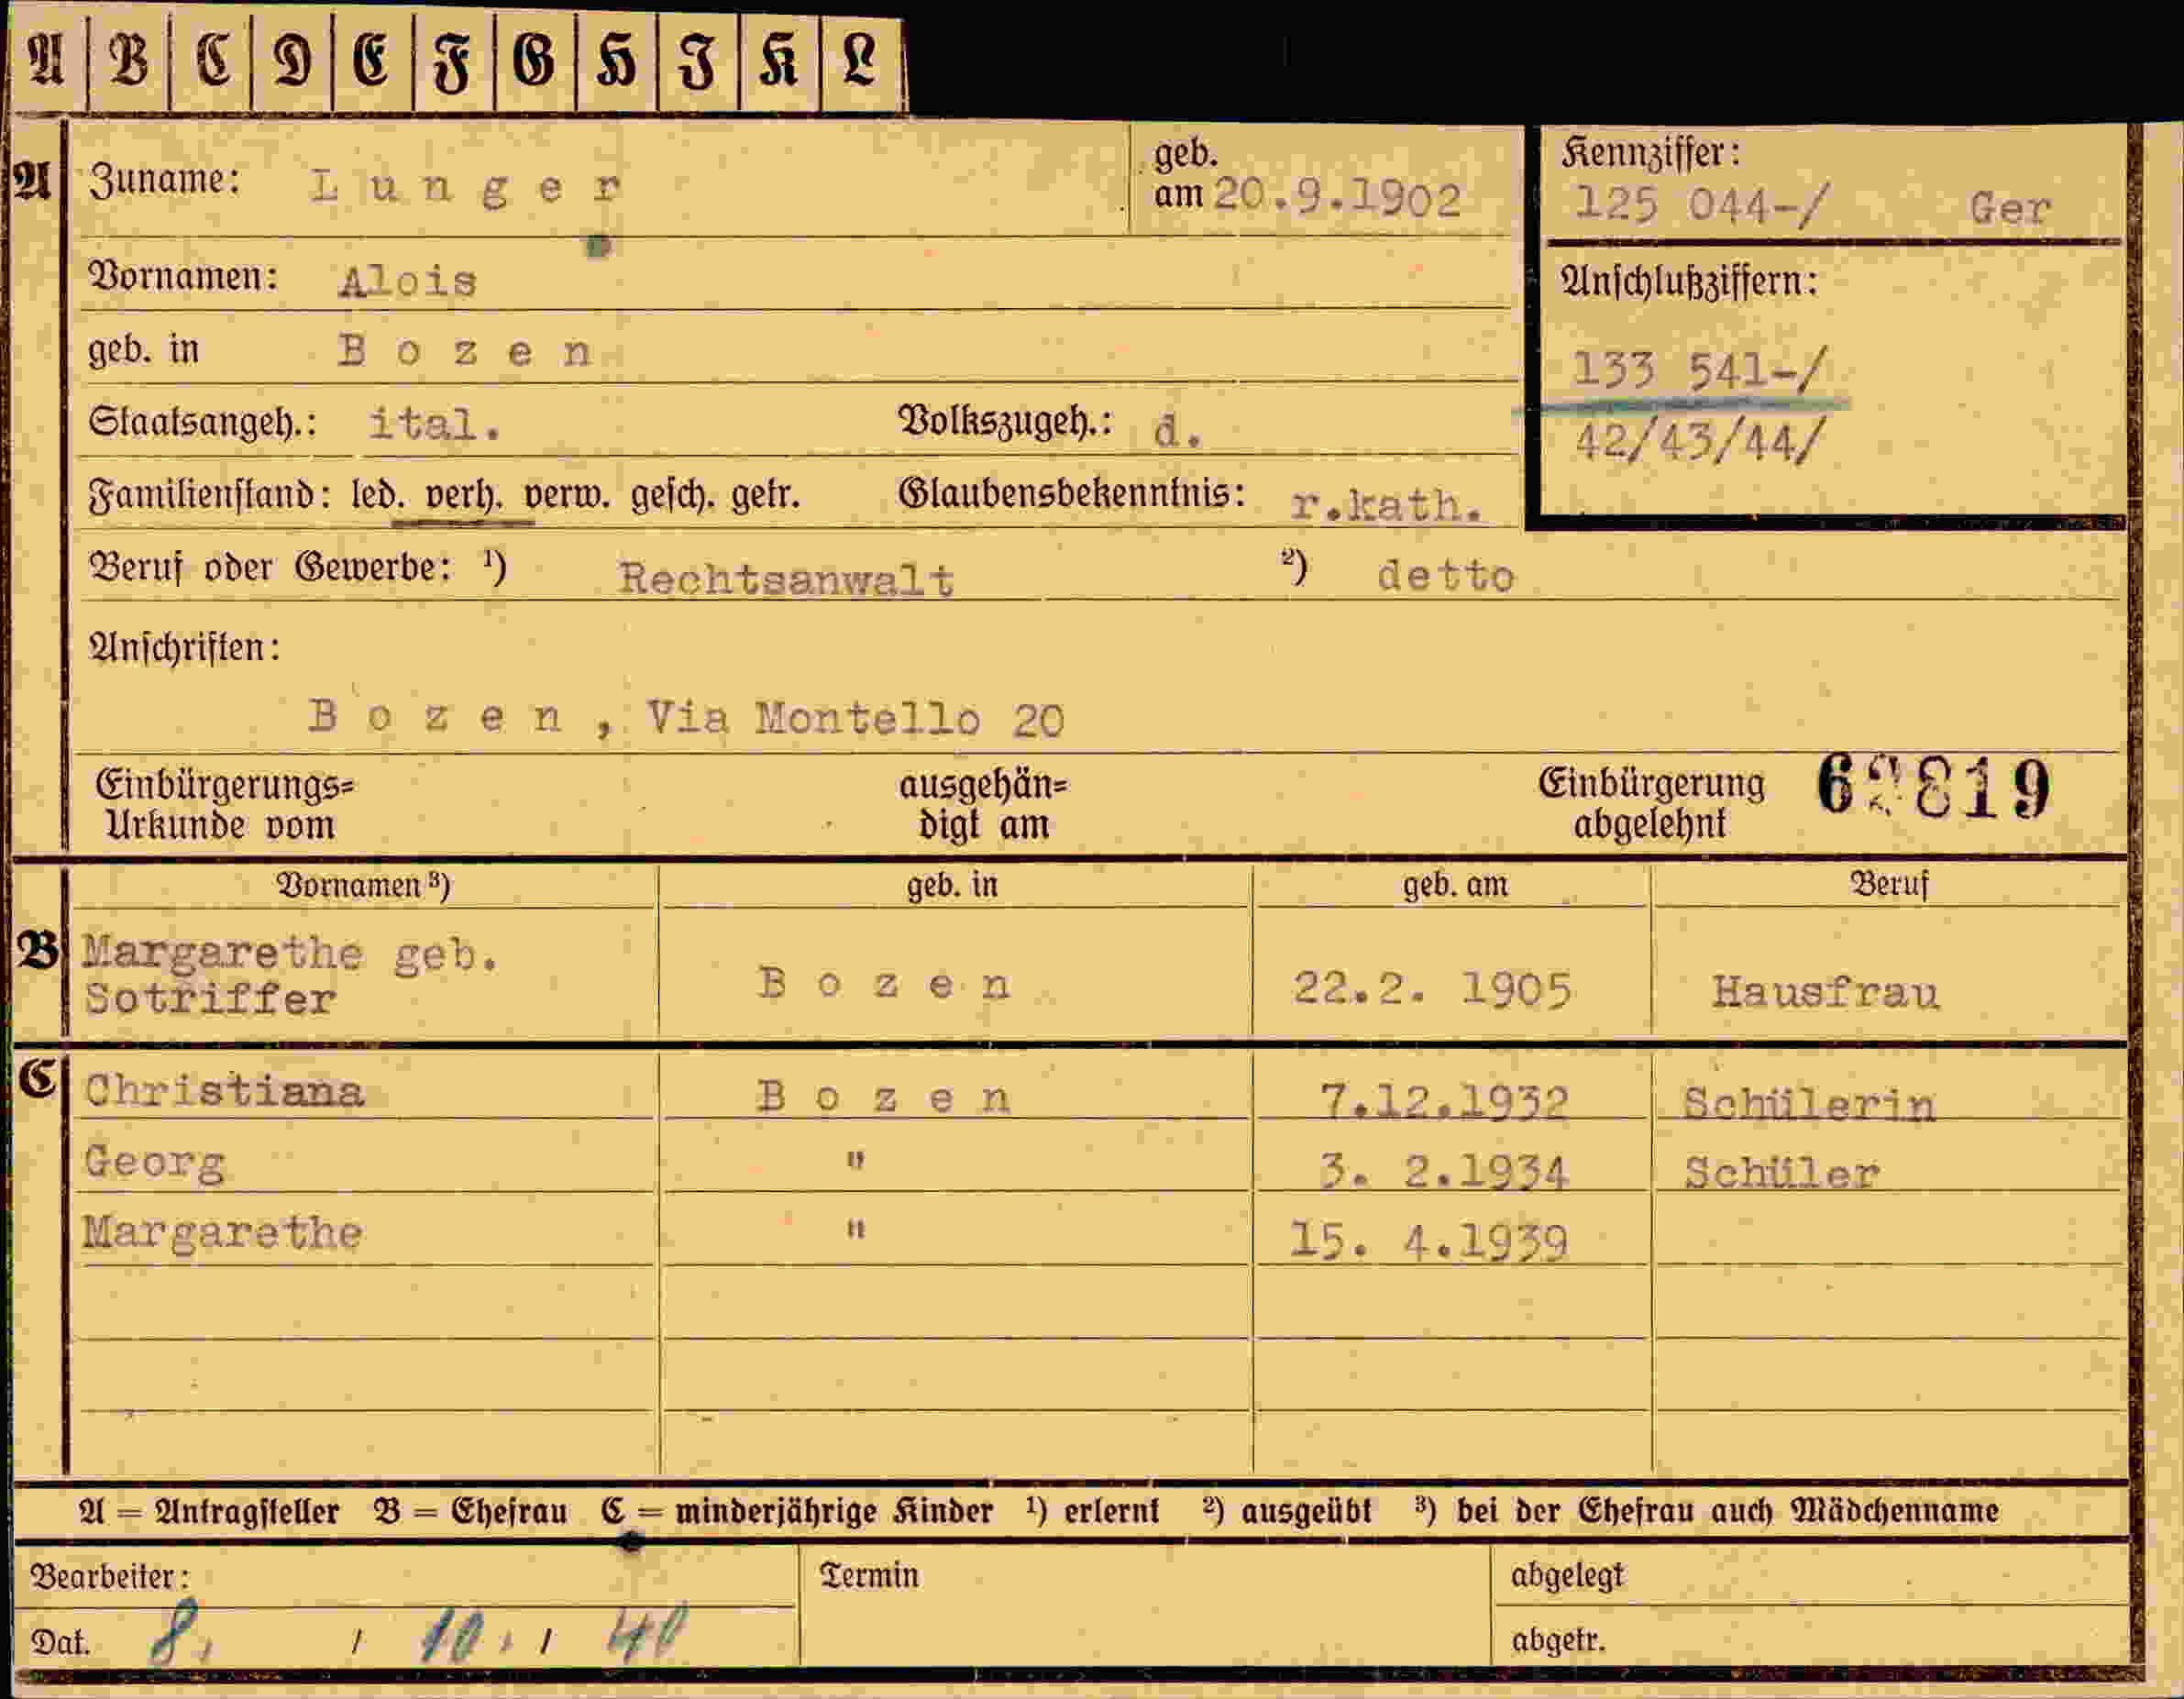 A B C D E F G H I K L
A Zuname: Lunger geb. am 20.9.1902
Kennziffer:
125 044-/ Ger
Vornamen: Alois
Anschlußziffern:
geb. in Bozen
133 541-/
Staatsangeh.: ital. Volkszugeh.: d.
42/43/44/
Familienstand: led. verh. verw. gesch. getr. Glaubensbekenntnis: r.kath.
Beruf oder Gewerbe: ¹) Rechtsanwalt ²) detto
Anschriften:
Bozen, Via Montello 20
Einbürgerungs=
Urkunde vom
ausgehän=
digt am
Einbürgerung
abgelehnt
Vornamen ³) geb. in geb. am Beruf
B Margarethe geb.
Sotriffer Bozen 22.2. 1905 Hausfrau
C Christiana Bozen 7.12.1932 Schülerin
Georg " 3. 2.1934 Schüler
Margarethe " 15. 4.1939
A = Antragsteller B = Ehefrau C = minderjährige Kinder ¹) erlernt ²) ausgeübt ³) bei der Ehefrau auch Mädchenname
Bearbeiter: Termin abgelegt
Dat. 8. / 10. / 40 abgetr.